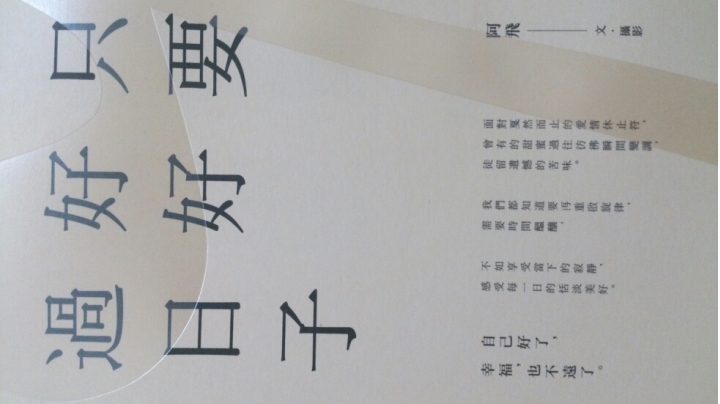 只要
好好
過日子
阿飛 —— 文·攝影
面對戛然而止的愛情休止符。
曾有的甜蜜過往彷彿瞬間變調,
徒留遺憾的苦味。
我們都知道要再重啟旋律,
需要時間醞釀,
不如享受當下的寂靜,
感受每一日的恬淡美好。
自己好了,
幸福,也不遠了。